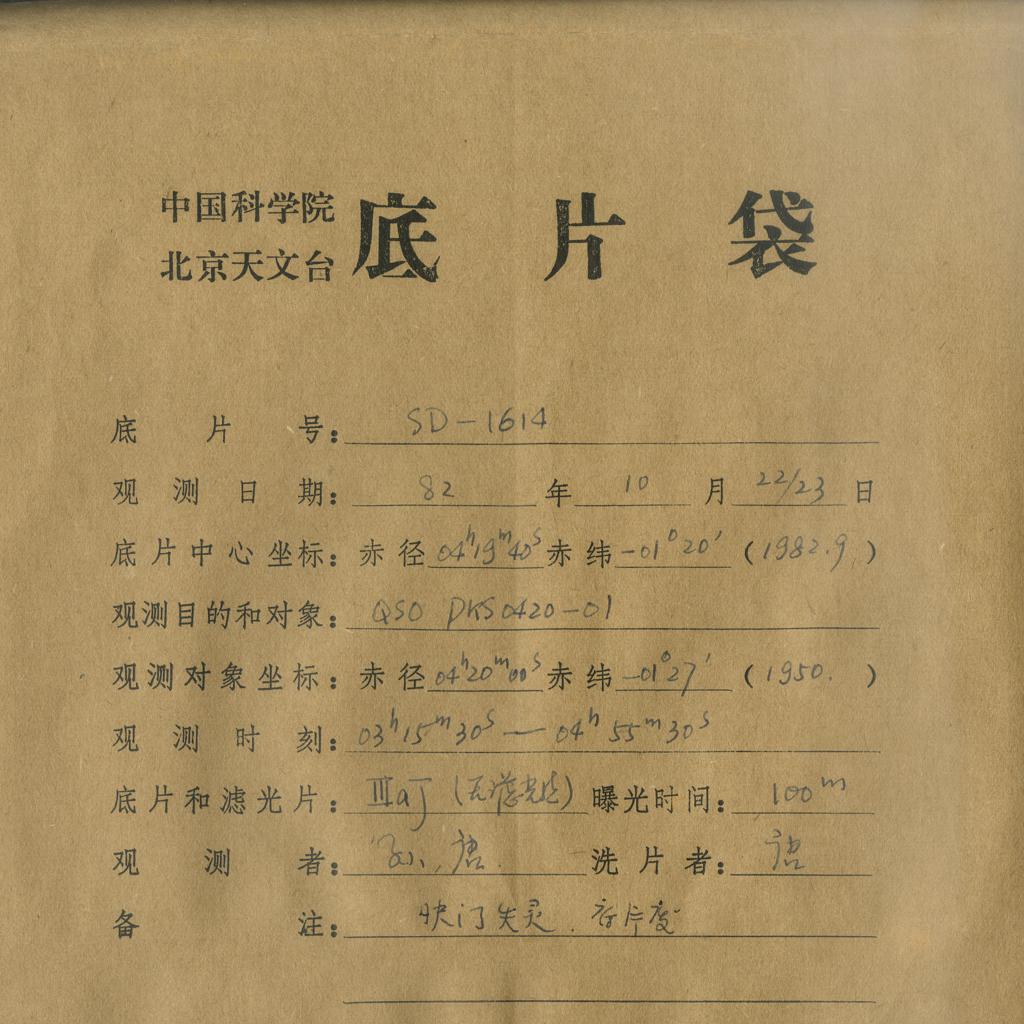 中国科学院
北京天文台 底片袋
底片号: SD-1614
观测日期: 82 年 10 月 22/23 日
底片中心坐标: 赤径 04ʰ19ᵐ40ˢ 赤纬 -01°20′ (1982.9)
观测目的和对象: QSO PKS0420-01
观测对象坐标: 赤径 04ʰ20ᵐ00ˢ 赤纬 -01°27′ (1950. )
观测时刻: 03ʰ15ᵐ30ˢ — 04ʰ55ᵐ30ˢ
底片和滤光片: ⅢaJ (无滤光片) 曝光时间: 100ᵐ
观测者: 孙、唐. 洗片者: 唐
备注: 快门失灵. 片废